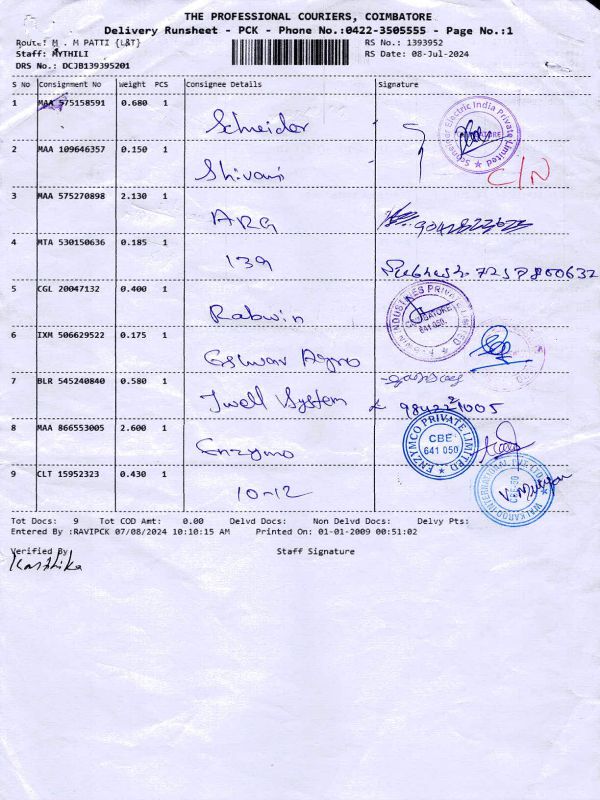 THE PROFESSIONAL COURIERS, COIMBATORE
Delivery Runsheet - PCK - Phone No.:0422-3505555 - Page No.:1
Route: M . M PATTI {L&T}
RS No.: 1393952
Staff: MYTHILI
RS Date: 08-Jul-2024
DRS No.: DCJB139395201
S No Consignment No Weight PCS Consignee Details Signature
1 MAA 575158591 0.680 1 Schneider
Schneider Electric India Private Limited
C/N
2 MAA 109646357 0.150 1 Shivani
3 MAA 575270898 2.130 1 ARG
4 MTA 530150636 0.185 1 139
5 CGL 20047132 0.400 1 Rabwin
INDUSTRIES PRIVATE
COIMBATORE
641 050
6 IXM 506629522 0.175 1 Eshwar Agro
7 BLR 545240840 0.580 1 Jwell System
8 MAA 866553005 2.600 1 Enzymo
ENZYMCO PRIVATE LIMITED
CBE
641 050
9 CLT 15952323 0.430 1 10-12
WALKAROO INTERNATIONAL PVT LTD
V. Murugan
Tot Docs: 9 Tot COD Amt: 0.00 Delvd Docs: Non Delvd Docs: Delvy Pts:
Entered By :RAVIPCK 07/08/2024 10:10:15 AM Printed On: 01-01-2009 00:51:02
Verified By Staff Signature
Karthika